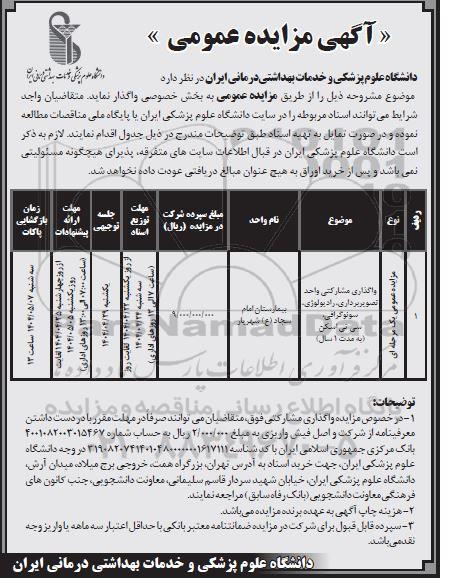 « آگهی مزایده عمومی »
دانشگاه علوم پزشکی و خدمات بهداشتی درمانی ایران در نظر دارد
موضوع مشروحه ذیل را از طریق مزایده عمومی به بخش خصوصی واگذار نماید. متقاضیان واجد
شرایط می‌توانند اسناد مربوطه را در سایت دانشگاه علوم پزشکی ایران یا پایگاه ملی مناقصات مطالعه
نموده و در صورت تمایل به تهیه اسناد طبق توضیحات مندرج در ذیل جدول اقدام نمایند. لازم به ذکر
است دانشگاه علوم پزشکی ایران در قبال اطلاعات سایت های متفرقه، پذیرای هیچگونه مسئولیتی
نمی باشد و پس از خرید اوراق به هیچ عنوان مبالغ دریافتی عودت داده نخواهد شد.
ردیف
نوع
موضوع
نام واحد
مبلغ سپرده شرکت
در مزایده (ریال)
مهلت
توزیع
اسناد
جلسه
توجیهی
مهلت
ارائه
پیشنهادات
زمان
بازگشایی
پاکات
۱
مزایده عمومی یک مرحله ای
واگذاری مشارکتی واحد
تصویربرداری، رادیولوژی،
سونوگرافی،
سی تی اسکن
(به مدت ۱ سال)
بیمارستان امام
سجاد (ع) شهریار
۹/۰۰۰/۰۰۰/۰۰۰
یکشنبه ۱۴۰۴/۰۴/۲۹
سه شنبه ۱۴۰۴/۰۵/۰۷
ساعت ۱۳
توضیحات:
۱- در خصوص مزایده واگذاری مشارکتی فوق، متقاضیان می توانند صرفا در مهلت مقرر با در دست داشتن
معرفینامه از شرکت و اصل فیش واریزی به مبلغ ۲/۰۰۰/۰۰۰ ریال به حساب شماره ۴۰۰۱۰۸۲۰۰۳۰۱۵۴۶۷
بانک مرکزی جمهوری اسلامی ایران با کد شناسه
در وجه دانشگاه
علوم پزشکی ایران، جهت خرید اسناد به آدرس تهران، بزرگراه همت، خروجی برج میلاد، میدان آرش،
دانشگاه علوم پزشکی ایران، خیابان شهید سردار قاسم سلیمانی، معاونت دانشجویی، جنب کانون های
فرهنگی معاونت دانشجویی (بانک رفاه سابق) مراجعه نمایند.
۲- هزینه چاپ آگهی به عهده برنده مزایده می‌باشد.
۳- سپرده قابل قبول برای شرکت در مزایده ضمانتنامه معتبر بانکی با حداقل اعتبار سه ماهه یا واریز وجه
نقد می‌باشد.
دانشگاه علوم پزشکی و خدمات بهداشتی درمانی ایران